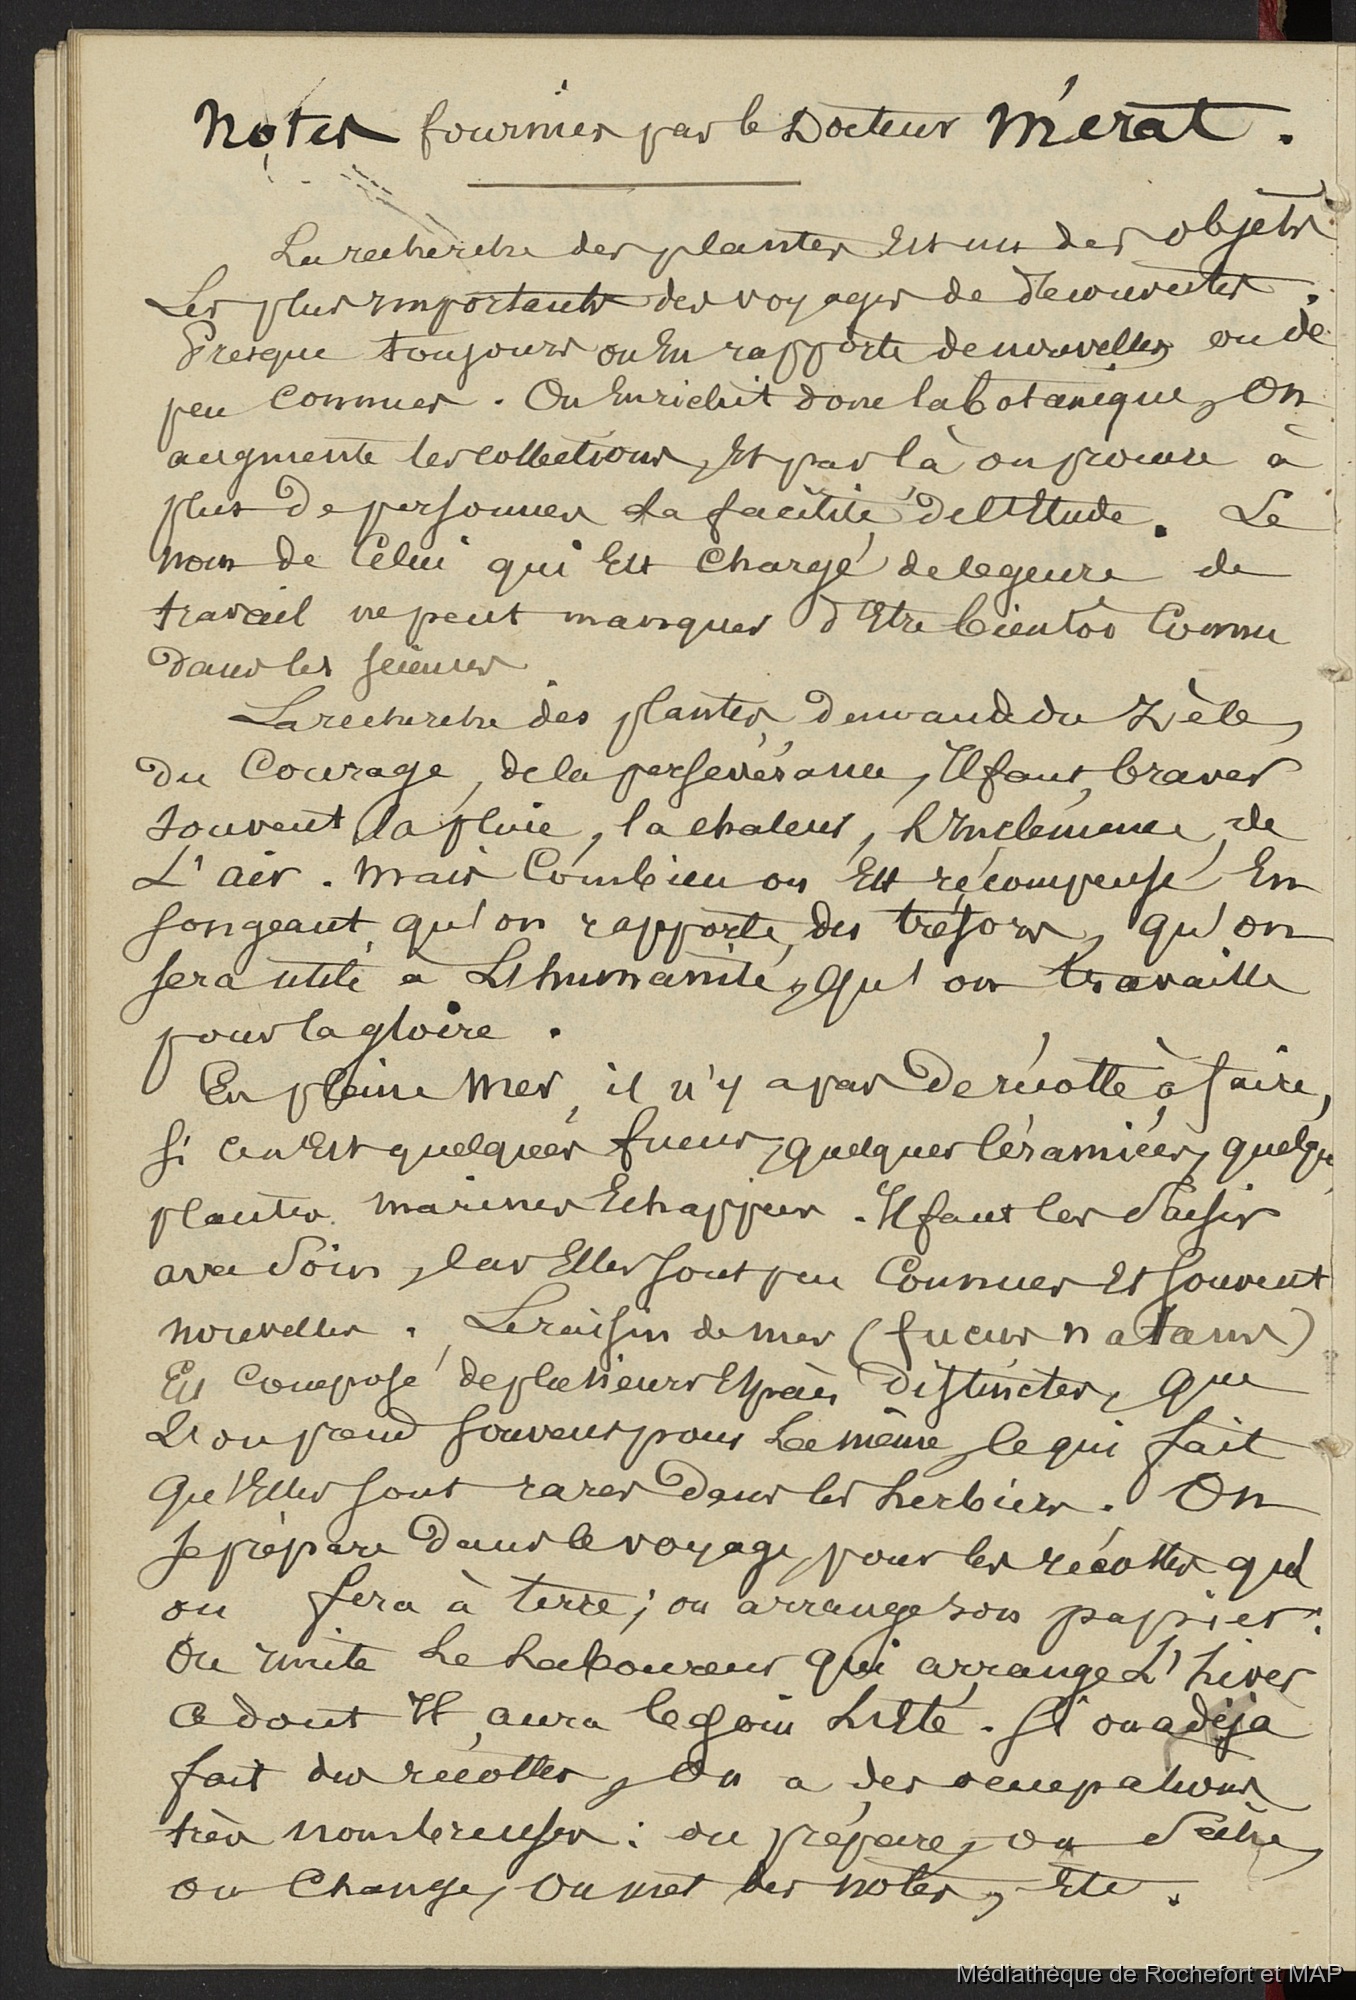 Notes fournies par le Docteur Mérat.
La recherche des plantes Est un des objets
Les plus importants des voyages de découvertes.
Presque toujours on En rapporte de nouvelles ou de
peu connues. On Enrichit donc la botanique, On
augmente les collections, Et par là on procure à
plus De personnes la facilité de l'Etude. Le
nom de Celui qui Est Chargé de le genre de
travail ne peut manquer d'Etre bientôt Connu
Dans les sciences.
La recherche des plantes Demande du Zèle,
Du Courage, de la persévérance, Il faut braver
souvent la pluie, la chaleur, L'Inclémence de
L'air. Mais Combien on Est récompensé En
songeant qu'on rapporte des trésors, qu'on
sera utile a L'humanité, Qu'on travaille
pour la gloire.
En pleine Mer, il n'y a pas De récolte à faire,
si ce n'Est quelques fucus, quelques Céramiées, quelqu
plantes marines Echappées. Il faut les Saisir
avec Soin, Car Elles sont peu Connues Et souvent
nouvelles. Le raisin de mer (fucus natans)
Est Composé de plusieurs Espèces Distinctes, que
L'on prend souvent pour La même, Ce qui fait
qu'Elles sont rares Dans les herbiers. On
se prépare Dans le voyage, pour les récoltes qu'
on fera à terre; on arrange son papier:
On imite Le Laboureur qui arrange L'hiver
Ce dont Il aura besoin L'Eté. Si on a déjà
fait des récoltes, On a des occupations
très nombreuses: on prépare, on Sèche,
on Change, On met des notes, Etc.
Médiathèque de Rochefort et MAP